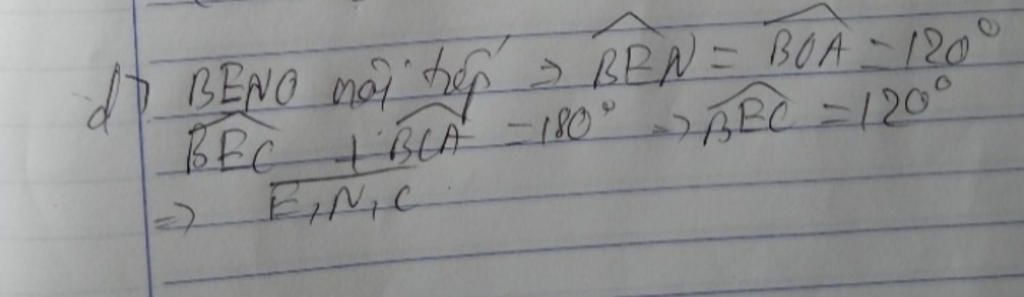 d) BENO nội tiếp ⇒ \widehat{BEN} = \widehat{BOA} = 120°
\widehat{BEC} + \widehat{BCA} = 180° ⇒ \widehat{BEC} = 120°
⇒ \overline{E, N, C}